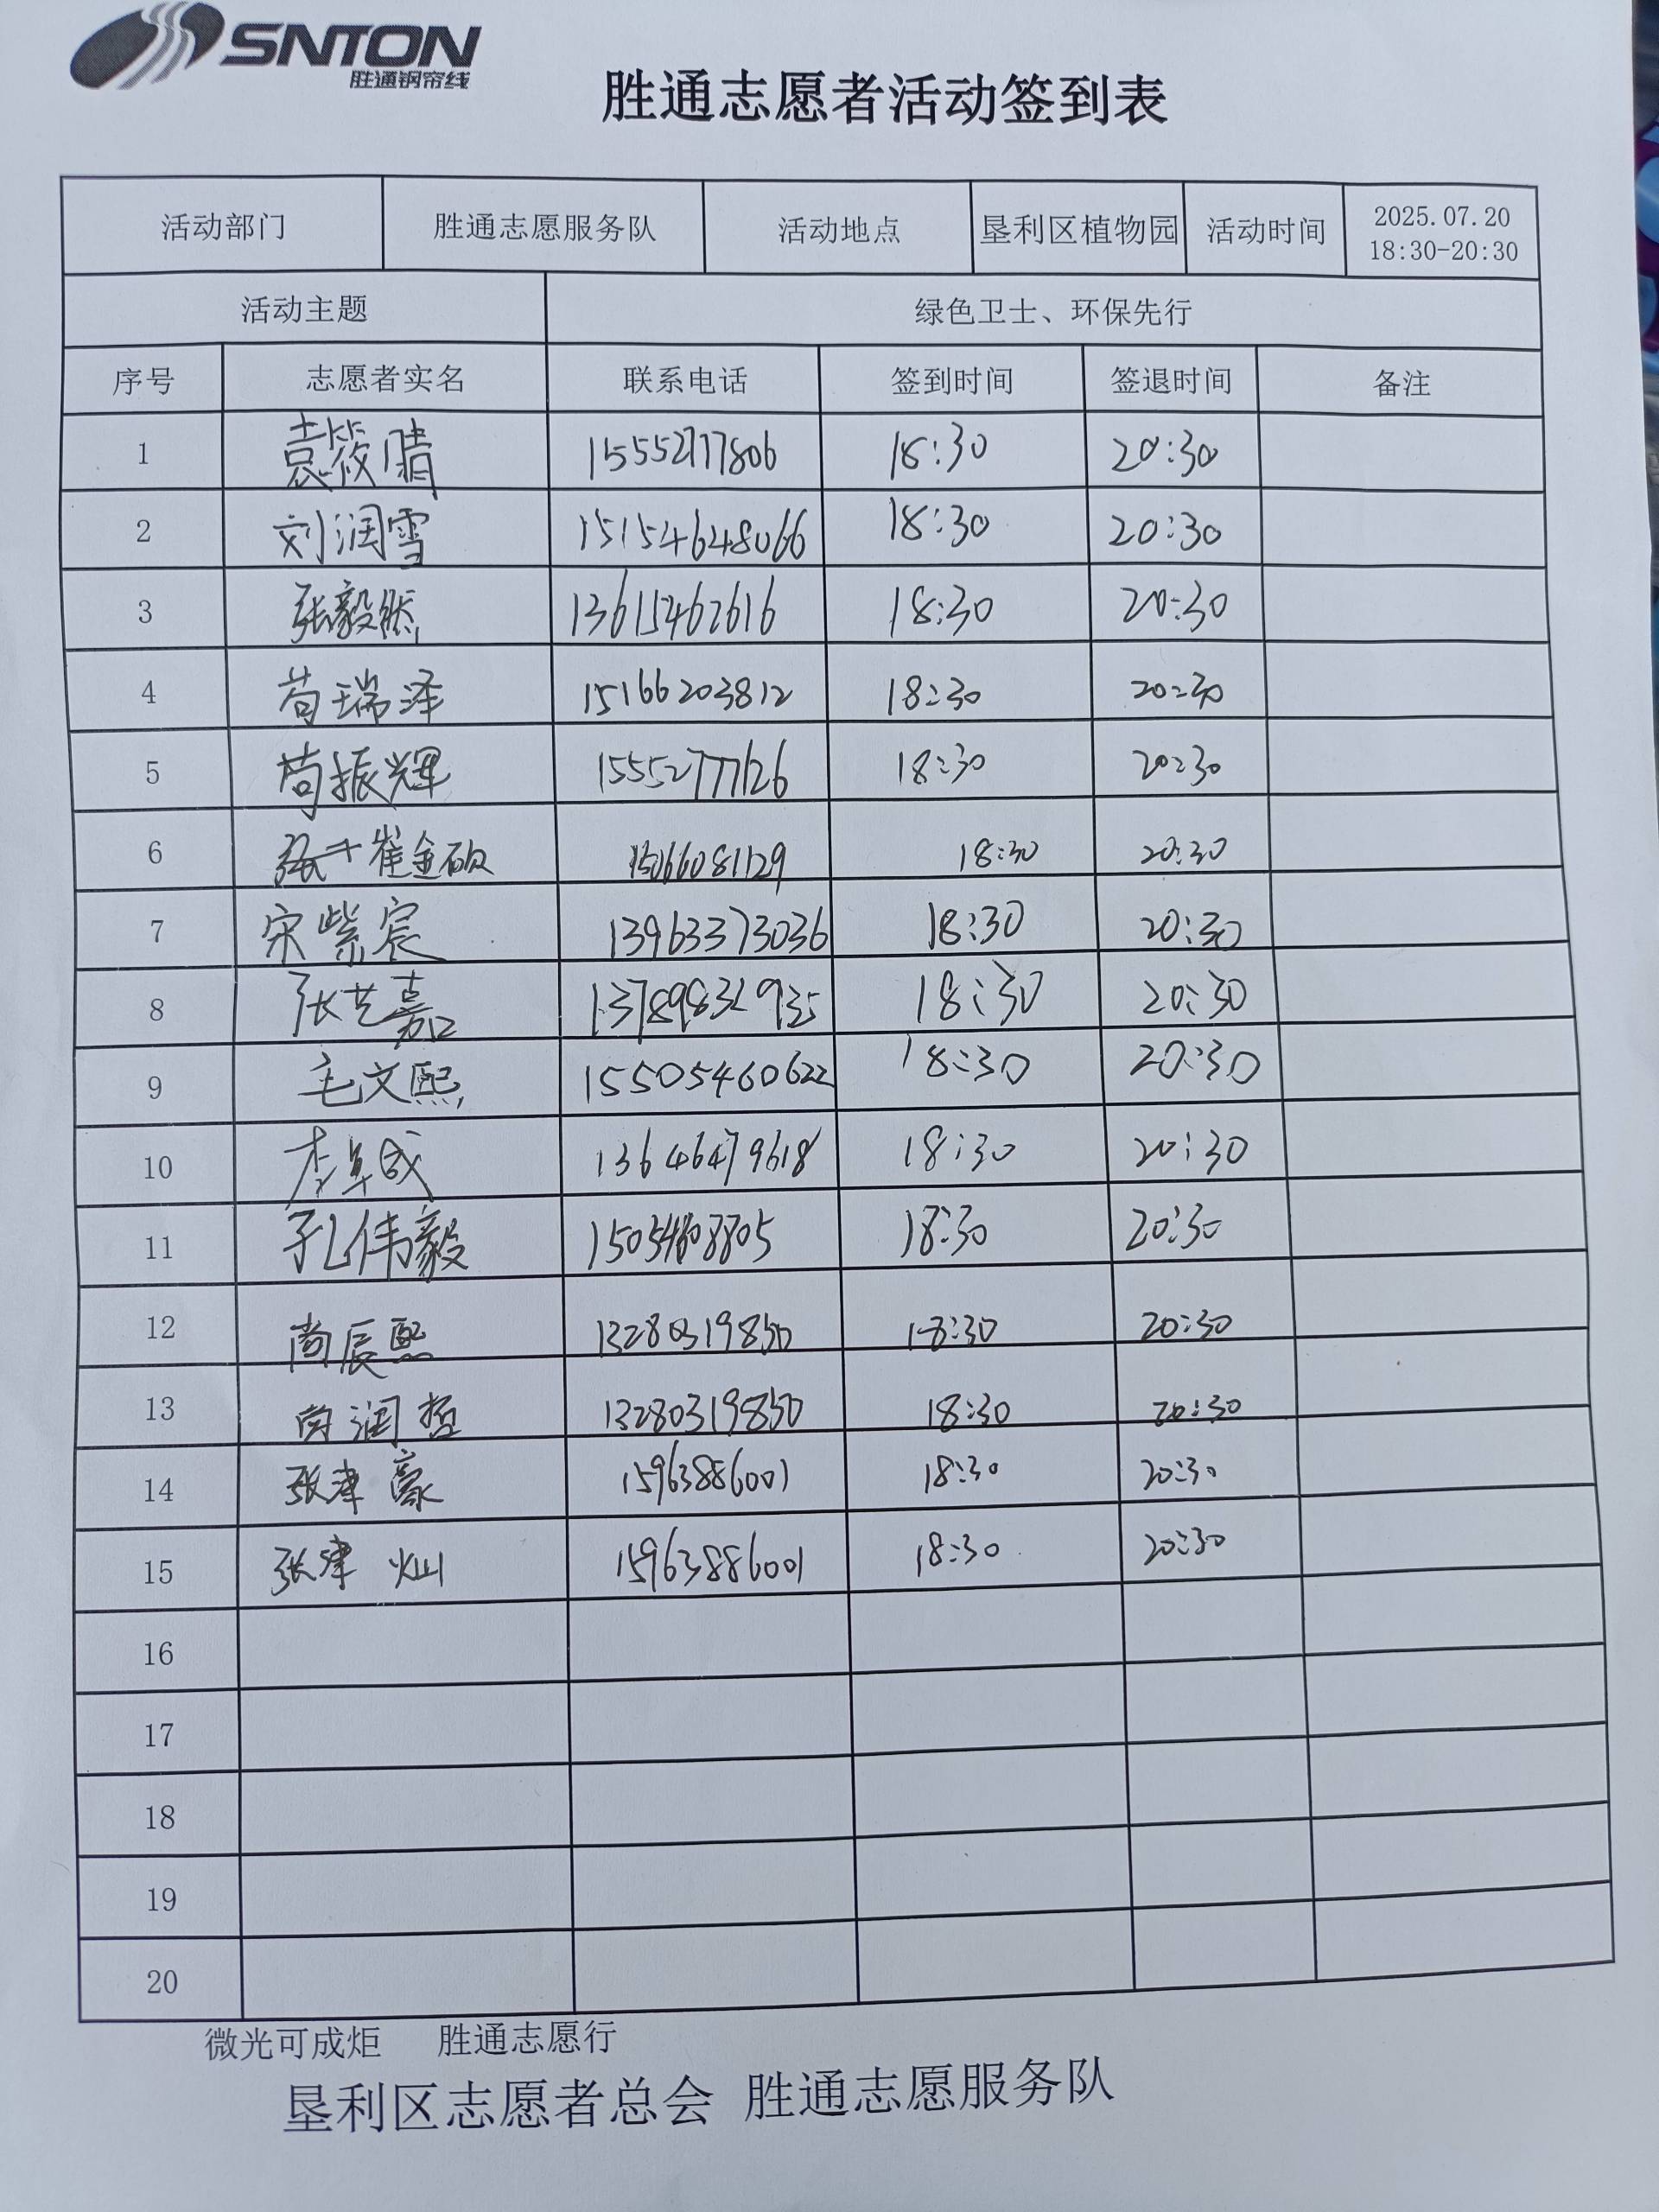 SNTON
胜通钢帘线
胜通志愿者活动签到表
活动部门 胜通志愿服务队 活动地点 垦利区植物园 活动时间 2025.07.20 18:30-20:30
活动主题 绿色卫士、环保先行
序号 志愿者实名 联系电话 签到时间 签退时间 备注
1 袁筱晴 15552777806 18:30 20:30
2 刘润雪 15154648066 18:30 20:30
3 张毅然 13615462616 18:30 20:30
4 苟瑞泽 15166203812 18:30 20:30
5 苟振辉 15552777126 18:30 20:30
6 崔金硕 15066081129 18:30 20:30
7 宋紫宸 13963373036 18:30 20:30
8 张艺嘉 18:30 20:30
9 毛文熙 15505460622 18:30 20:30
10 13646479618 18:30 20:30
11 孔伟毅 18:30 20:30
12 尚辰熙 13280319850 18:30 20:30
13 尚润哲 13280319850 18:30 20:30
14 张津豪 15963886001 18:30 20:30
15 张津灿 15963886001 18:30 20:30
16
17
18
19
20
微光可成炬 胜通志愿行
垦利区志愿者总会 胜通志愿服务队